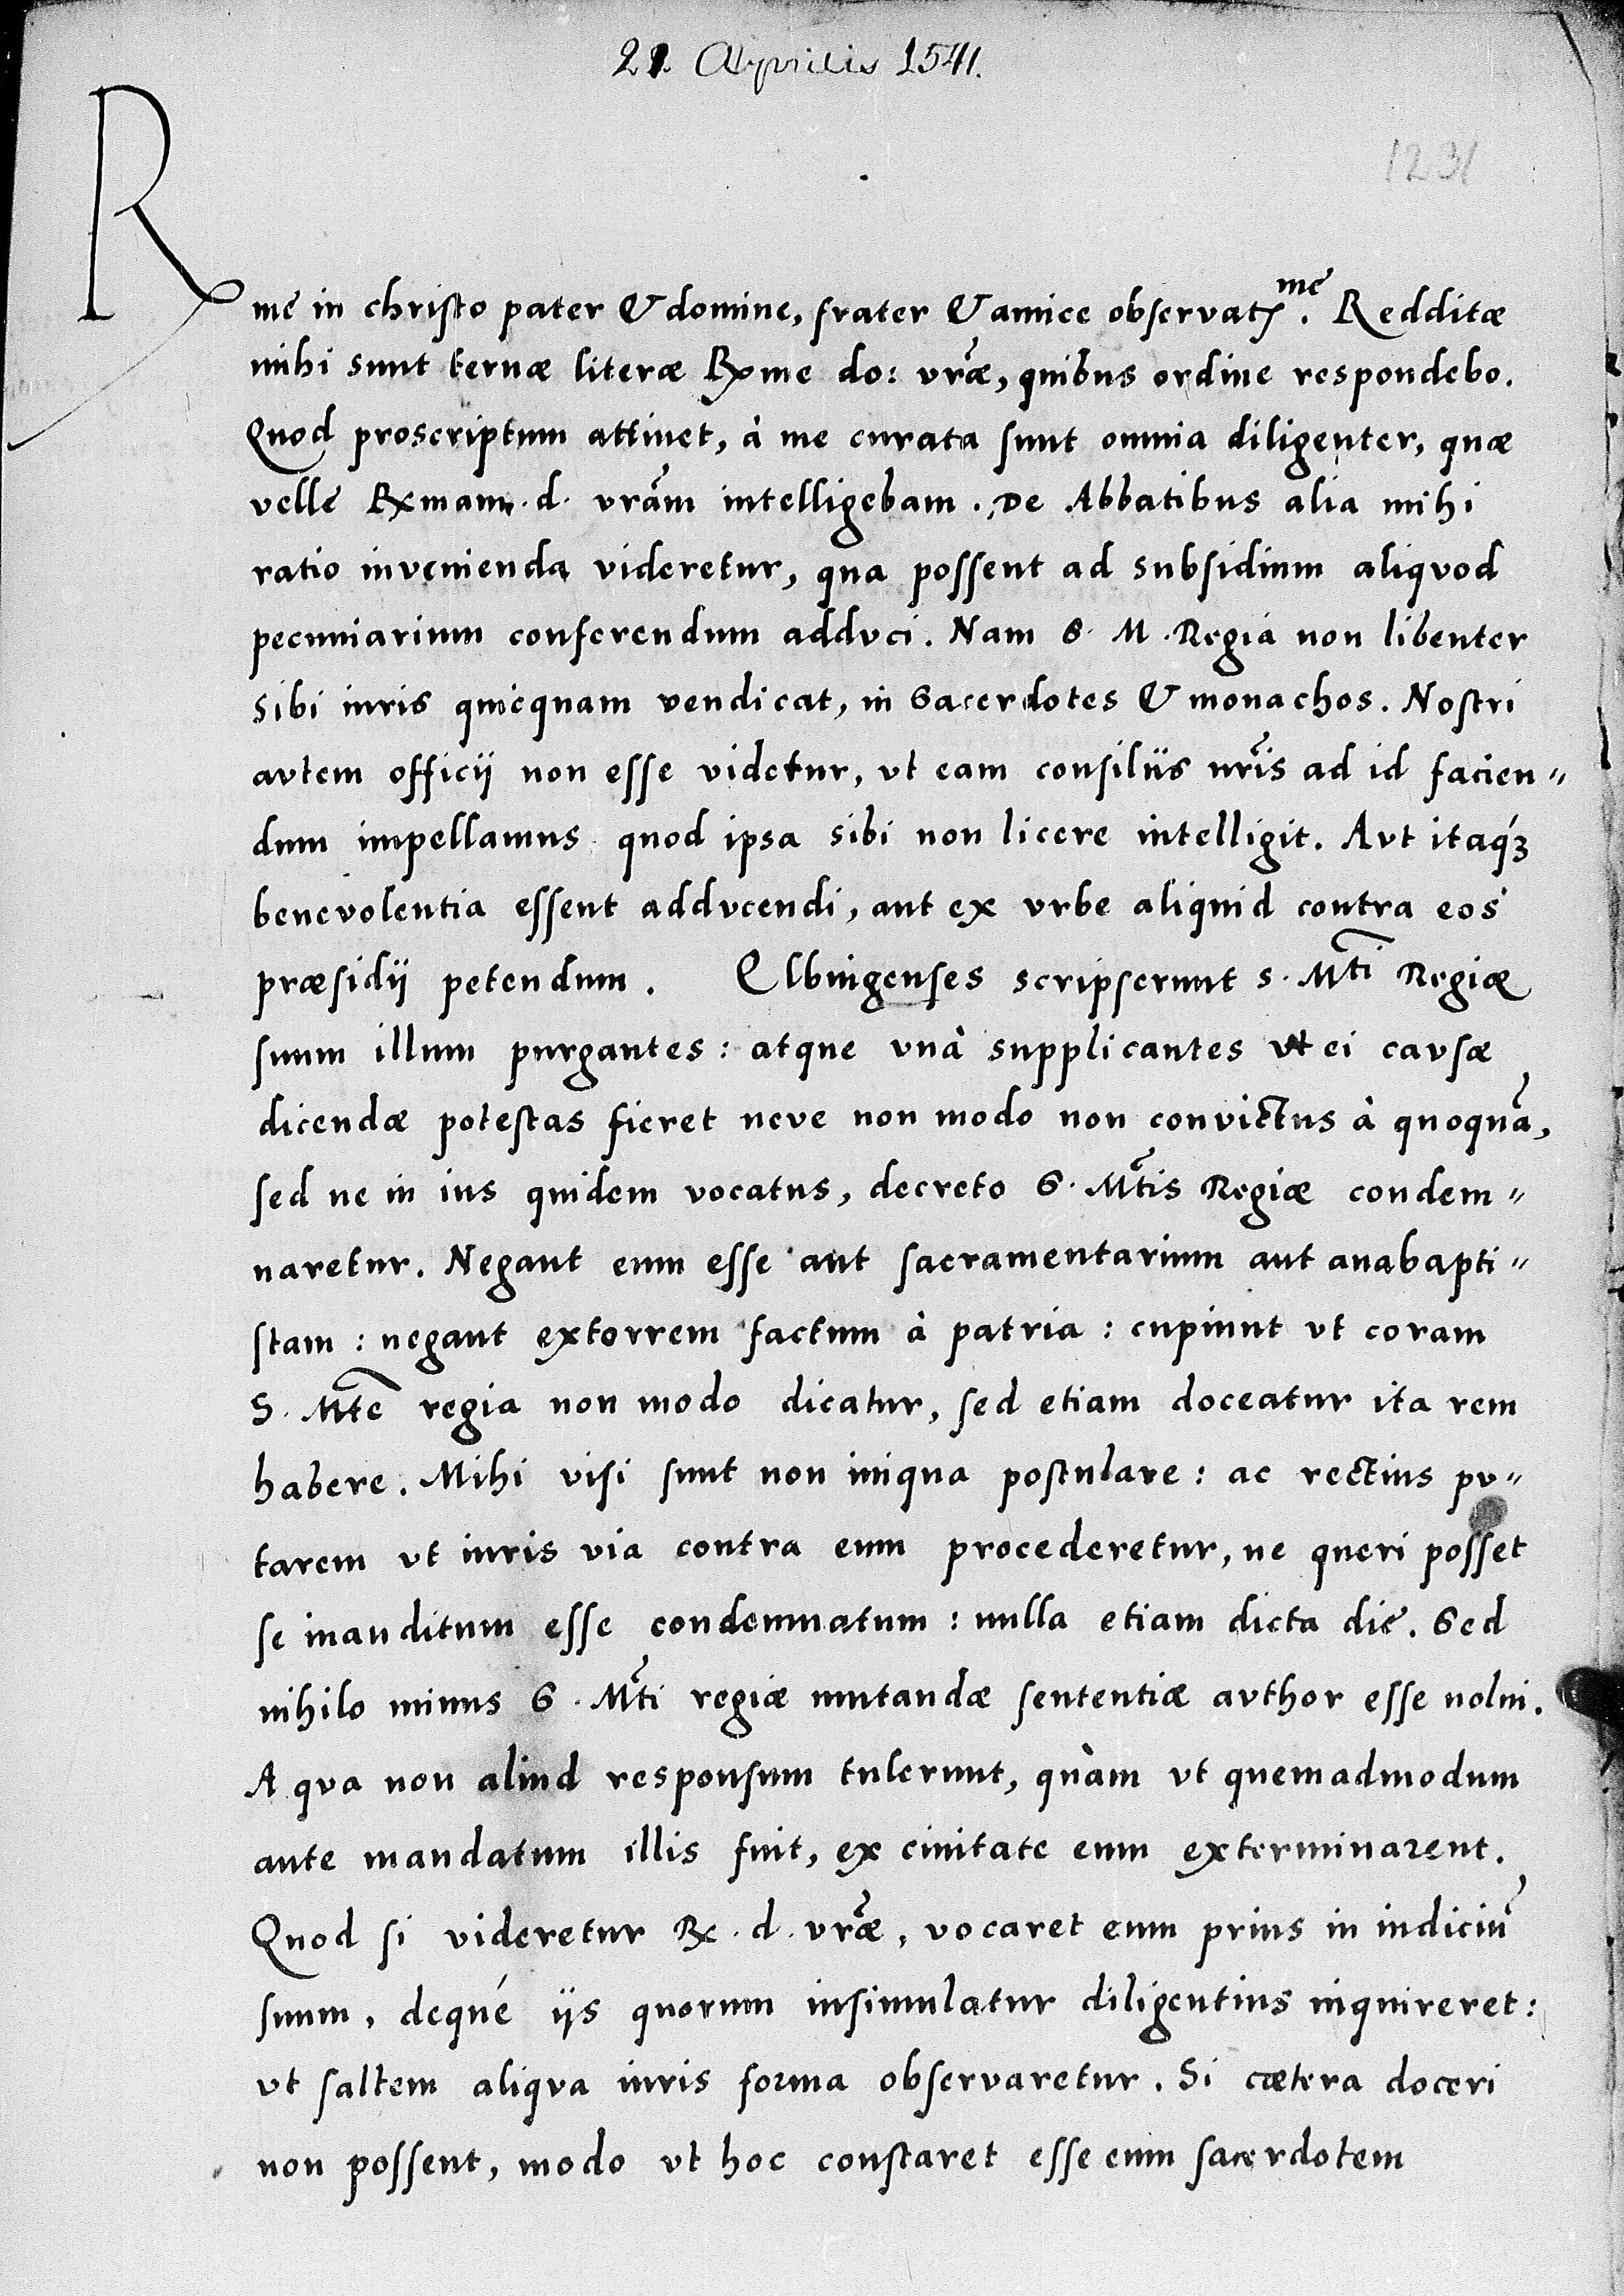 21. Aprilis 1541.
1231
Rme in christo pater & domine, frater & amice observatme. Redditæ
mihi sunt ternæ literæ Rxme do: vr̃æ, quibus ordine respondebo.
Quod proscriptum attinet, à me curata sunt omnia diligenter, quæ
velle Rxmam. d. vr̃am intelligebam. De Abbatibus alia mihi
ratio invenienda videretur, qua possent ad subsidium aliqvod
pecuniarium conferendum addvci. Nam S. M. Regia non libenter
sibi iuris quicquam vendicat, in Sacerdotes & monachos. Nostri
avtem officij non esse videtur, vt eam consiliis nr̃is ad id facien"
dum impellamus quod ipsa sibi non licere intelligit. Avt itaq́ꝫ
benevolentia essent addvcendi, aut ex vrbe aliquid contra eos
præsidij petendum. Elbingenses scripserunt S. Mti Regiæ
suum illum purgantes: atque vnà supplicantes vt ei cavsæ
dicendæ potestas fieret neve non modo non convictus à quoquã,
sed ne in ius quidem vocatus, decreto S. Mtis Regiæ condem"
naretur. Negant eum esse aut sacramentarium aut anabapti"
stam: negant extorrem factum à patria: cupiunt vt coram
S. Mte regia non modo dicatur, sed etiam doceatur ita rem
habere. Mihi visi sunt non iniqua postulare: ac rectius pv"
tarem vt iuris via contra eum procederetur, ne queri posset
se inauditum esse condemnatum: nulla etiam dicta die. Sed
nihilo minus S. Mti regiæ mutandæ sententiæ avthor esse nolui.
A qva non aliud responsum tulerunt, quàm vt quemadmodum
ante mandatum illis fuit, ex civitate eum exterminarent.
Quod si videretur Rx. d. vr̃æ, vocaret eum prius in iudiciũ
suum, dequé ijs quorum insimulatur diligentius inquireret:
vt saltem aliqva iuris forma observaretur. Si cætera doceri
non possent, modo vt hoc constaret esse eum sacerdotem